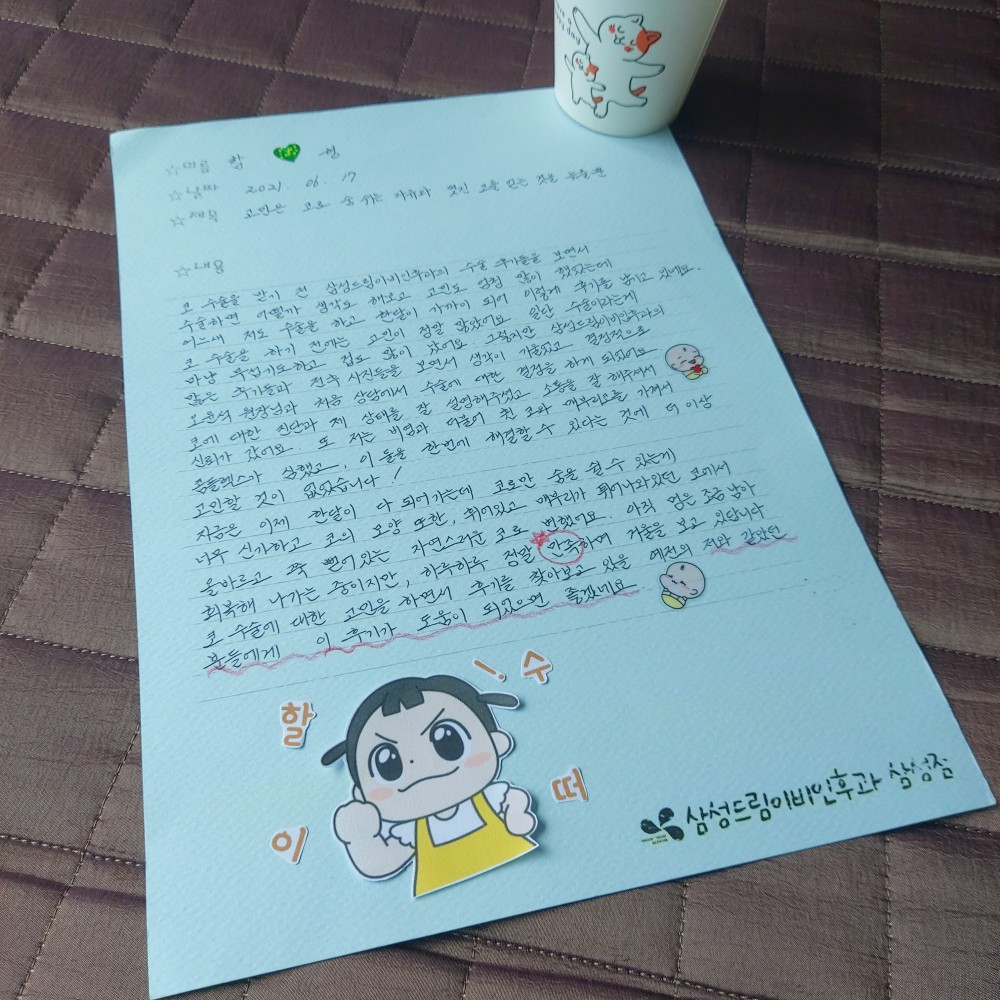 ☆이름 함 💚 정
☆날짜 2021. 06. 17
☆제목 고민은 코로 숨 쉬는 자유와 멋진 코를 얻는 것을 늦출뿐
☆내용
코 수술을 받기 전 삼성드림이비인후과의 수술 후기들을 보면서
수술하면 어떨까 생각도 해보고 고민도 엄청 많이 했었는데
어느새 저도 수술을 하고 한달이 가까이 되어 이렇게 후기를 남기고 있네요.
코 수술을 하기 전에는 고민이 정말 많았어요 일단 수술이라는게
마냥 무섭기도하고 겁도 많이 났어요 그렇지만 삼성드림이비인후과의
많은 후기들과 전후 사진들을 보면서 생각이 기울었고 결정적으로
오윤석 원장님과 처음 상담에서 수술에 대한 결정을 하게 되었어요
코에 대한 진단과 제 상태를 잘 설명해주셨고 소통을 잘 해주셔서
신뢰가 갔어요. 또 저는 비염과 더불어 휜 코와 매부리코를 가져서
콤플렉스가 심했고, 이 둘을 한번에 해결할 수 있다는 것에 더 이상
고민할 것이 없었습니다!
지금은 이제 한달이 다 되어가는데 코로만 숨을 쉴 수 있는게
너무 신기하고 코의 모양 또한, 휘어있고 매부리가 튀어나와있던 코에서
올바르고 쭉 뻗어있는 자연스러운 코로 변했어요. 아직 멍은 조금 남아
회복해 나가는 중이지만, 하루하루 정말 만족하며 거울을 보고 있답니다
코 수술에 대한 고민을 하면서 후기를 찾아보고 있을 예전의 저와 같았던
분들에게 이 후기가 도움이 되었으면 좋겠네요
할 ! 수
이 떠
삼성드림이비인후과 삼성점